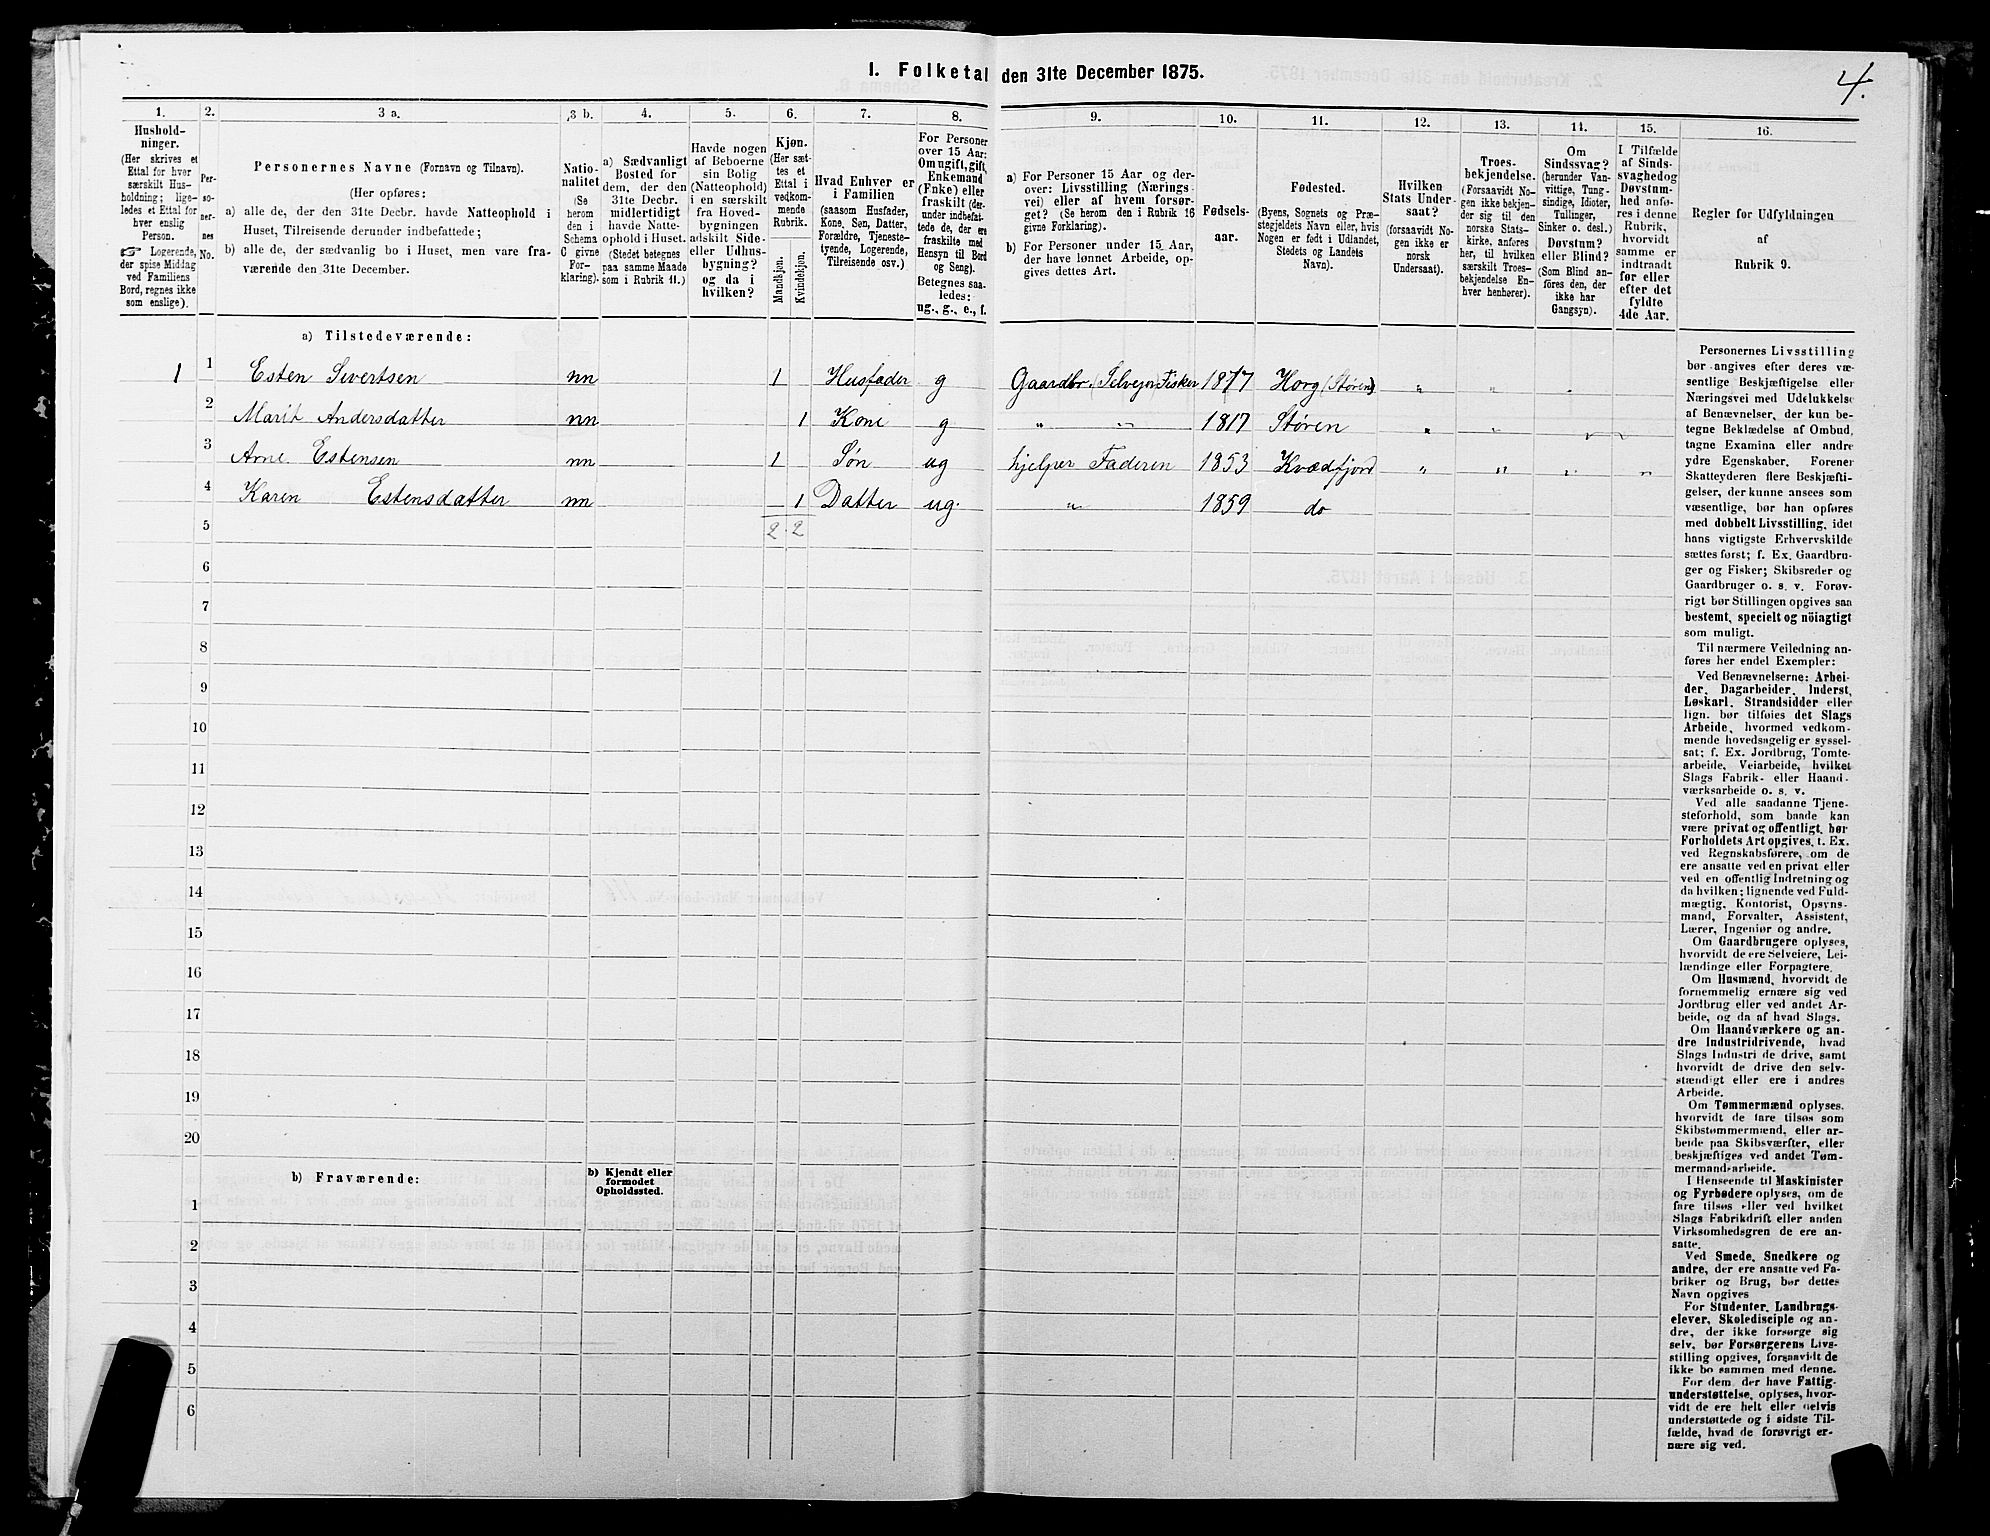 4.
I. Folketal den 31te December 1875.
1. 2. 3 a. 3 b. 4. 5. 6. 7. 8. 9. 10. 11. 12. 13. 14. 15. 16.
Hushold-
ninger.
(Her skrives et
Ettal for hver
særskilt Hus-
holdning; lige-
ledes et Ettal for
hver enslig
Person.
☞ Logerende,
der spise Middag
ved Familiens
Bord, regnes ikke
som enslige).
Per-
so-
ner-
nes
No.
Personernes Navne (Fornavn og Tilnavn).
(Her opføres:
a) alle de, der den 31te Decbr. havde Natteophold i
Huset, Tilreisende derunder indbefattede;
b) alle de, der sædvanlig bo i Huset, men vare fra-
værende den 31te December.
Natio-
nalitet
(Se
herom
den i
Schema
C givne
For-
klaring).
a) Sædvanligt
Bosted for
dem, der den
31te Decbr.
midlertidigt
havde Natte-
ophold i Huset.
(Stedet betegnes
paa samme Maade
som i Rubrik 11.)
Havde nogen
af Beboerne
sin Bolig
(Natteophold)
i en særskilt
fra Hoved-
bygningen
adskilt Side-
eller Udhus-
bygning?
og da i
hvilken?
Kjøn.
(Her sæt-
tes et
Ettal i
vedkom-
mende
Rubrik.
Mandkjøn.
Kvindekjøn.
Hvad Enhver er
i Familien
(saasom Husfader,
Kone, Søn, Datter,
Forældre, Tjeneste-
tyende, Logerende,
Tilreisende osv.)
For Personer
over 15 Aar:
Om ugift, gift,
Enkemand
(Enke) eller
fraskilt (der-
under indbefat-
tede de, der ere
fraskilte med
Hensyn til Bord
og Seng).
Betegnes saa-
ledes:
ug., g., e., f.
a) For Personer 15 Aar og der-
over: Livsstilling (Nærings-
vei) eller af hvem forsør-
get? (Se herom den i Rubrik 16
givne Forklaring).
b) For Personer under 15 Aar,
der have lønnet Arbeide, op-
gives dettes Art.
Fødsels-
aar.
Fødested.
(Byens, Sognets og Præ-
stegjeldets Navn eller, hvis
Nogen er født i Udlandet,
Stedets og Landets
Navn).
Hvilken
Stats Under-
saat?
(forsaavidt No-
gen ikke er
norsk
Undersaat).
Troes-
bekjendelse.
(Forsaavidt No-
gen ikke bekjen-
der sig til den
norske Stats-
kirke, anføres
her, til hvilken
særskilt Troes-
bekjendelse En-
hver henhører).
Om
Sindssvag?
(herunder Van-
vittige, Tung-
sindige, Idioter,
Tullinger,
Sinker o. desl.)
Døvstum?
eller Blind?
(Som Blind an-
føres den, der
ikke har
Gangsyn).
I Tilfælde
af Sinds-
svaghed og
Døvstum-
hed anfø-
res i denne
Rubrik,
hvorvidt
samme er
indtraadt
før eller
efter det
fyldte
4de Aar.
Regler for Udfyldningen
af
Rubrik 9.
a) Tilstedeværende:
1 1 Esten Sivertsen nn 1 Husfader g Gaardbr. (Selveier) Fisker 1817 Horg (Støren) " " "
2 Marit Andersdatter nn 1 Kone g " " 1817 Støren " " " "
3 Arne Estensen nn 1 Søn ug hjelper Faderen 1853 Kvædfjord " " " "
4 Karen Estensdatter nn 1 Datter ug. " 1859 do
5 2 2
6
7
8
9
10
11
12
13
14
15
16
17
18
19
20
b) Fraværende:
b) Kjendt eller
formodet
Opholdssted.
1
2
3
4
5
6
Personernes Livsstilling
bør angives efter deres væ-
sentlige Beskjæftigelse eller
Næringsvei med Udelukkelse
af Benævnelser, der kun be-
tegne Beklædelse af Ombud,
tagne Examina eller andre
ydre Egenskaber. Forener
Skatteyderen flere Beskjæfti-
gelser, der kunne ansees som
væsentlige, bør han opføres
med dobbelt Livsstilling, idet
hans vigtigste Erhvervskilde
sættes først; f. Ex. Gaardbru-
ger og Fisker; Skibsreder og
Gaardbruger o. s. v. Forøv-
rigt bør Stillingen opgives saa
bestemt, specielt og nöiagtigt
som muligt.
Til nærmere Veiledning an-
føres her endel Exempler:
Ved Benævnelserne: Arbei-
der, Dagarbeider, Inderst,
Løskarl, Strandsidder eller
lign. bør tilføies det Slags
Arbeide, hvormed vedkom-
mende hovedsagelig er syssel-
sat; f. Ex. Jordbrug, Tomte-
arbeide, Veiarbeide, hvilket
Slags Fabrik- eller Haand-
værksarbeide o. s. v.
Ved alle saadanne Tjene-
steforhold, som baade kan
være privat og offentligt, bør
Forholdets Art opgives, f. Ex.
ved Regnskabsførere, om de
ere ansatte ved en privat eller
ved en offentlig Indretning og
da hvilken; lignende ved Fuld-
mægtig, Kontorist, Opsyns-
mand, Forvalter, Assistent,
Lærer, Ingeniør og andre.
Om Gaardbrugere oplyses,
hvorvidt de ere Selveiere, Lei-
lændinge eller Forpagtere.
Om Husmænd, hvorvidt de
fornemmelig ernære sig ved
Jordbrug eller ved andet Ar-
beide, og da af hvad Slags.
Om Haandværkere og an-
dre Industridrivende, hvad
Slags Industri de drive, samt
hvorvidt de drive den selv-
stændigt eller ere i andres
Arbeide.
Om Tømmermænd oplyses,
hvorvidt de fare tilsøs som
Skibstømmermænd, eller ar-
beide paa Skibsværfter, eller
beskjæftiges ved andet Tøm-
mermandsarbeide.
I Henseende til Maskinister
og Fyrbødere oplyses, om de
fare tilsøs eller ved hvilket
Slags Fabrikdrift eller anden
Virksomhedsgren de ere an-
satte.
Ved Smede, Snedkere og
andre, der ere ansatte ved Fa-
briker og Brug, bør dettes
Navn opgives
For Studenter, Landbrugs-
elever, Skoledisciple og an-
dre, der ikke forsørge sig
selv, bør Forsørgerens Livs-
stilling opgives, forsaavidt de
ikke bo sammen med denne.
For dem, der have Fattig-
understøttelse, oplyses, hvor-
vidt de ere helt eller delvis
understøttede og i sidste Til-
fælde, hvad de forøvrigt er-
nære sig ved.